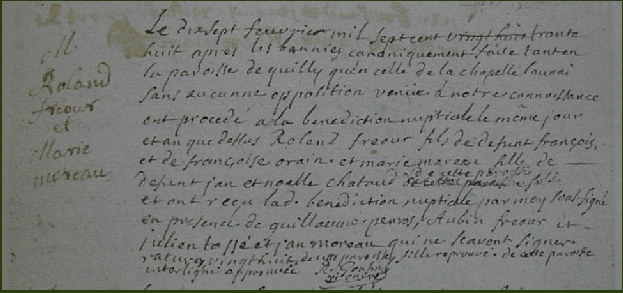 M
Roland
freour
et
Marie
moreau
Le dixsept feuvrier mil sept cent vingt huit trante
huit après les bannies canoniquement faite tant en
la paroisse de quilly qu'en celle de la chapelle launai
sans aucunne opposition venüe à notre connoissance
ont procedé a la benediction nuptiale le même jour
et an que dessus Roland freour fils de defunt françois,
et de françoise orain. et marie moreau fille de
defunt jan et noelle chataud de cette paroisse
et ont reçu lad. benediction nuptiale par moy soussigné
en presence de guillaume perros, Aubin freour et
julien tassé et jan moreau qui ne scavent signer
rature vingt huit de cette paroisse, fille reprouvé. de cette paroisse
interligne approuvée